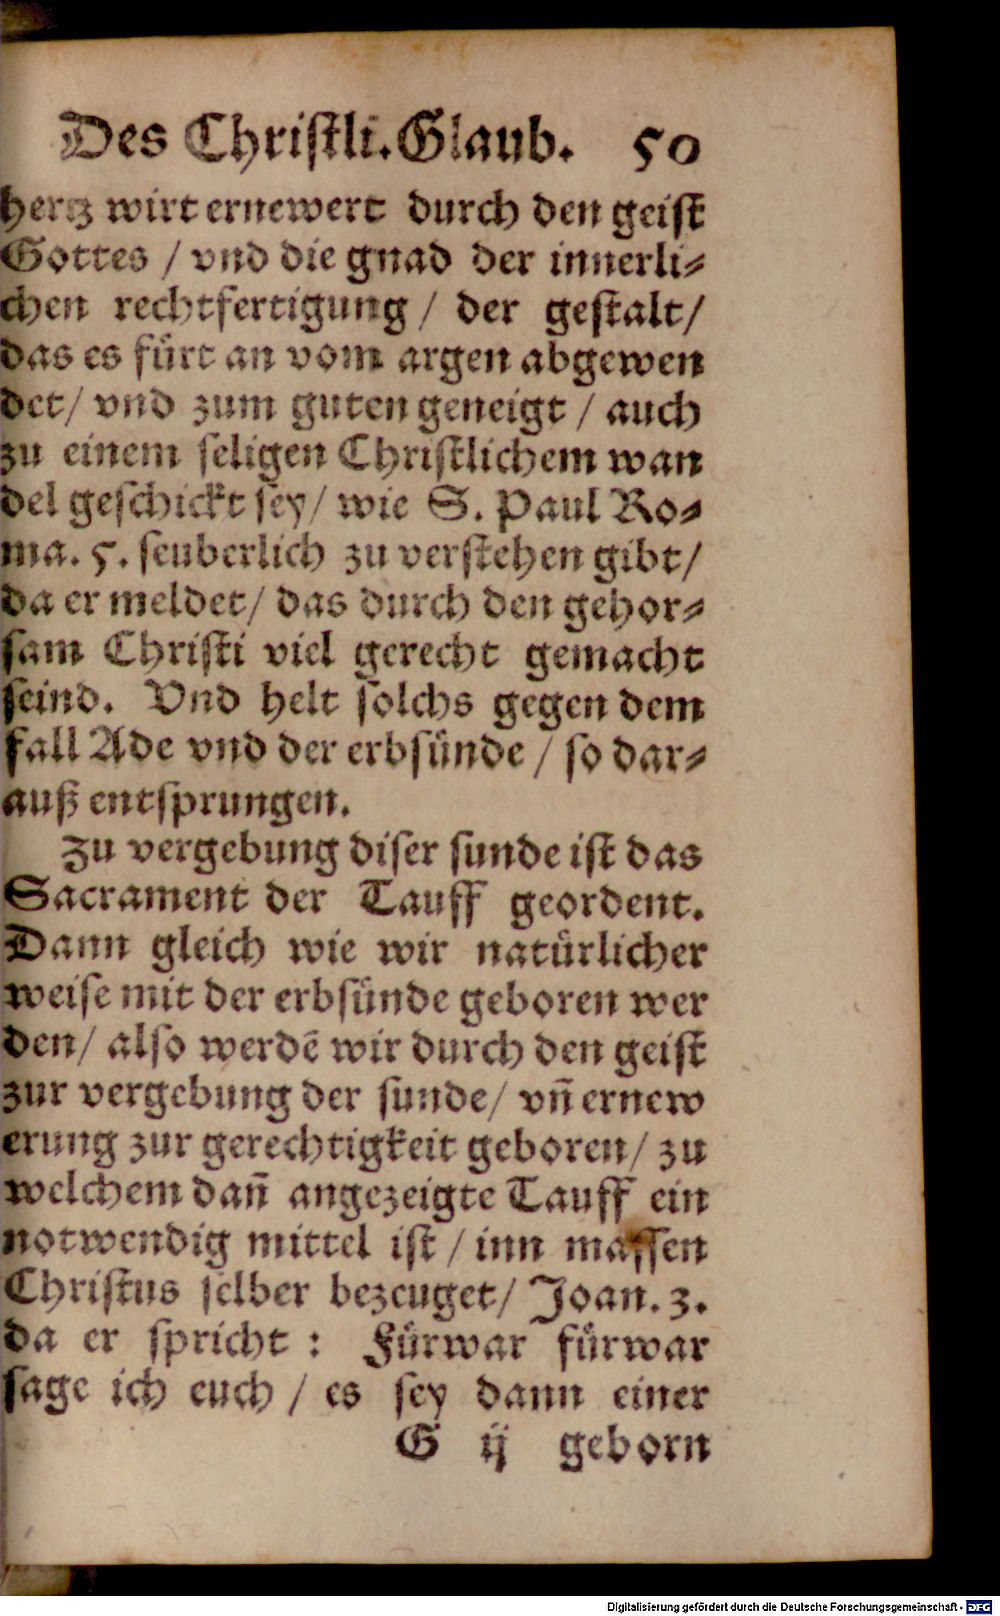 Des Christli. Glaub. 50
hertz wirt ernewert durch den geist
Gottes / vnd die gnad der innerli⸗
chen rechtfertigung / der gestalt /
das es fürt an vom argen abgewen
det / vnd zum guten geneigt / auch
zu einem seligen Christlichem wan
del geschickt sey / wie S. Paul Ro⸗
ma. 5. seuberlich zu verstehen gibt /
da er meldet / das durch den gehor⸗
sam Christi viel gerecht gemacht
seind. Vnd helt solchs gegen dem
fall Ade vnd der erbsünde / so dar⸗
auß entsprungen.
Zu vergebung diser sunde ist das
Sacrament der Tauff geordent.
Dann gleich wie wir natürlicher
weise mit der erbsünde geboren wer
den / also werdẽ wir durch den geist
zur vergebung der sunde / vñ ernew
erung zur gerechtigkeit geboren / zu
welchem dañ angezeigte Tauff ein
notwendig mittel ist / inn massen
Christus selber bezeuget / Joan. 3.
da er spricht : Fürwar fürwar
sage ich euch / es sey dann einer
G ij geborn
Digitalisierung gefördert durch die Deutsche Forschungsgemeinschaft - DFG